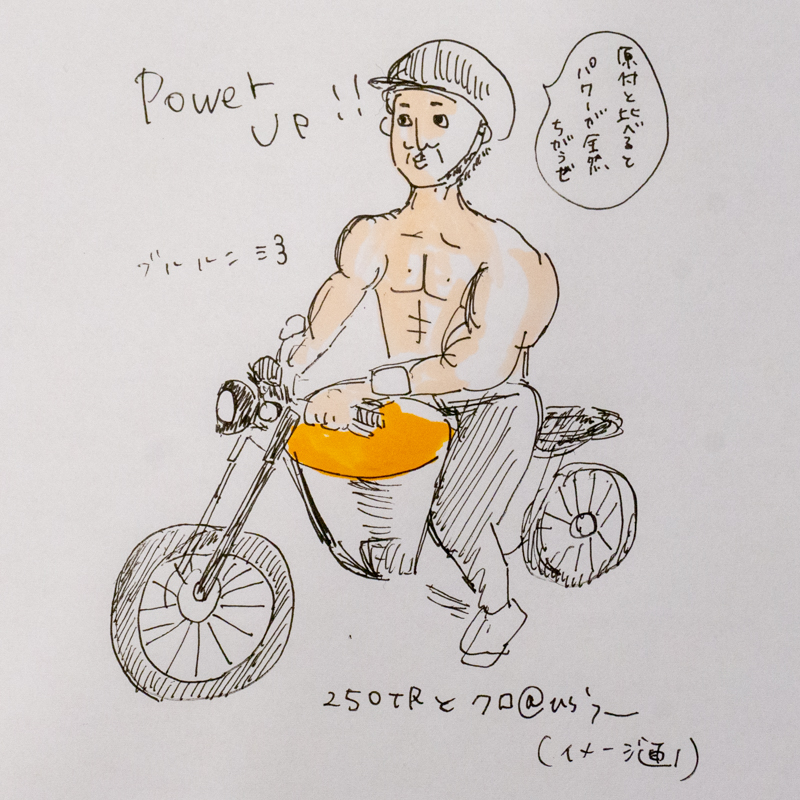 Power
up !!
原付と比べると
パワーが全然、
ちがうぜ
ブルルン
250TRとクロ@ひらつー
(イメージ画1)